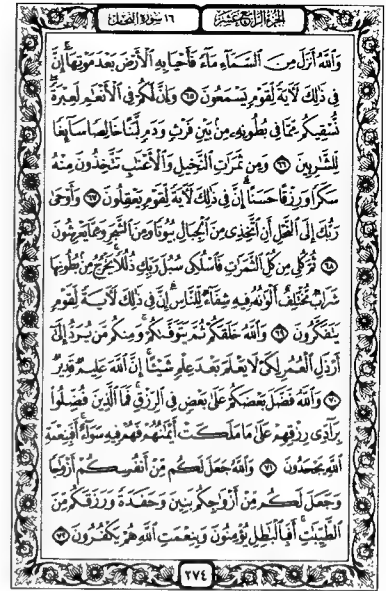 الجزء الرابع عشر
١٦ سورة النحل
وَاللَّهُ أَنزَلَ مِنَ السَّمَاءِ مَاءً فَأَحْيَا بِهِ الْأَرْضَ بَعْدَ مَوْتِهَا إِنَّ
فِي ذَٰلِكَ لَآيَةً لِّقَوْمٍ يَسْمَعُونَ ٦٥ وَإِنَّ لَكُمْ فِي الْأَنْعَامِ لَعِبْرَةً
نُّسْقِيكُم مِّمَّا فِي بُطُونِهِ مِن بَيْنِ فَرْثٍ وَدَمٍ لَّبَنًا خَالِصًا سَائِغًا
لِّلشَّارِبِينَ ٦٦ وَمِن ثَمَرَاتِ النَّخِيلِ وَالْأَعْنَابِ تَتَّخِذُونَ مِنْهُ
سَكَرًا وَرِزْقًا حَسَنًا إِنَّ فِي ذَٰلِكَ لَآيَةً لِّقَوْمٍ يَعْقِلُونَ ٦٧ وَأَوْحَىٰ
رَبُّكَ إِلَى النَّحْلِ أَنِ اتَّخِذِي مِنَ الْجِبَالِ بُيُوتًا وَمِنَ الشَّجَرِ وَمِمَّا يَعْرِشُونَ
٦٨ ثُمَّ كُلِي مِن كُلِّ الثَّمَرَاتِ فَاسْلُكِي سُبُلَ رَبِّكِ ذُلُلًا يَخْرُجُ مِن بُطُونِهَا
شَرَابٌ مُّخْتَلِفٌ أَلْوَانُهُ فِيهِ شِفَاءٌ لِّلنَّاسِ إِنَّ فِي ذَٰلِكَ لَآيَةً لِّقَوْمٍ
يَتَفَكَّرُونَ ٦٩ وَاللَّهُ خَلَقَكُمْ ثُمَّ يَتَوَفَّاكُمْ وَمِنكُم مَّن يُرَدُّ إِلَىٰ
أَرْذَلِ الْعُمُرِ لِكَيْ لَا يَعْلَمَ بَعْدَ عِلْمٍ شَيْئًا إِنَّ اللَّهَ عَلِيمٌ قَدِيرٌ
٧٠ وَاللَّهُ فَضَّلَ بَعْضَكُمْ عَلَىٰ بَعْضٍ فِي الرِّزْقِ فَمَا الَّذِينَ فُضِّلُوا
بِرَادِّي رِزْقِهِمْ عَلَىٰ مَا مَلَكَتْ أَيْمَانُهُمْ فَهُمْ فِيهِ سَوَاءٌ أَفَبِنِعْمَةِ
اللَّهِ يَجْحَدُونَ ٧١ وَاللَّهُ جَعَلَ لَكُم مِّنْ أَنفُسِكُمْ أَزْوَاجًا
وَجَعَلَ لَكُم مِّنْ أَزْوَاجِكُم بَنِينَ وَحَفَدَةً وَرَزَقَكُم مِّنَ
الطَّيِّبَاتِ أَفَبِالْبَاطِلِ يُؤْمِنُونَ وَبِنِعْمَتِ اللَّهِ هُمْ يَكْفُرُونَ ٧٢
٢٧٤